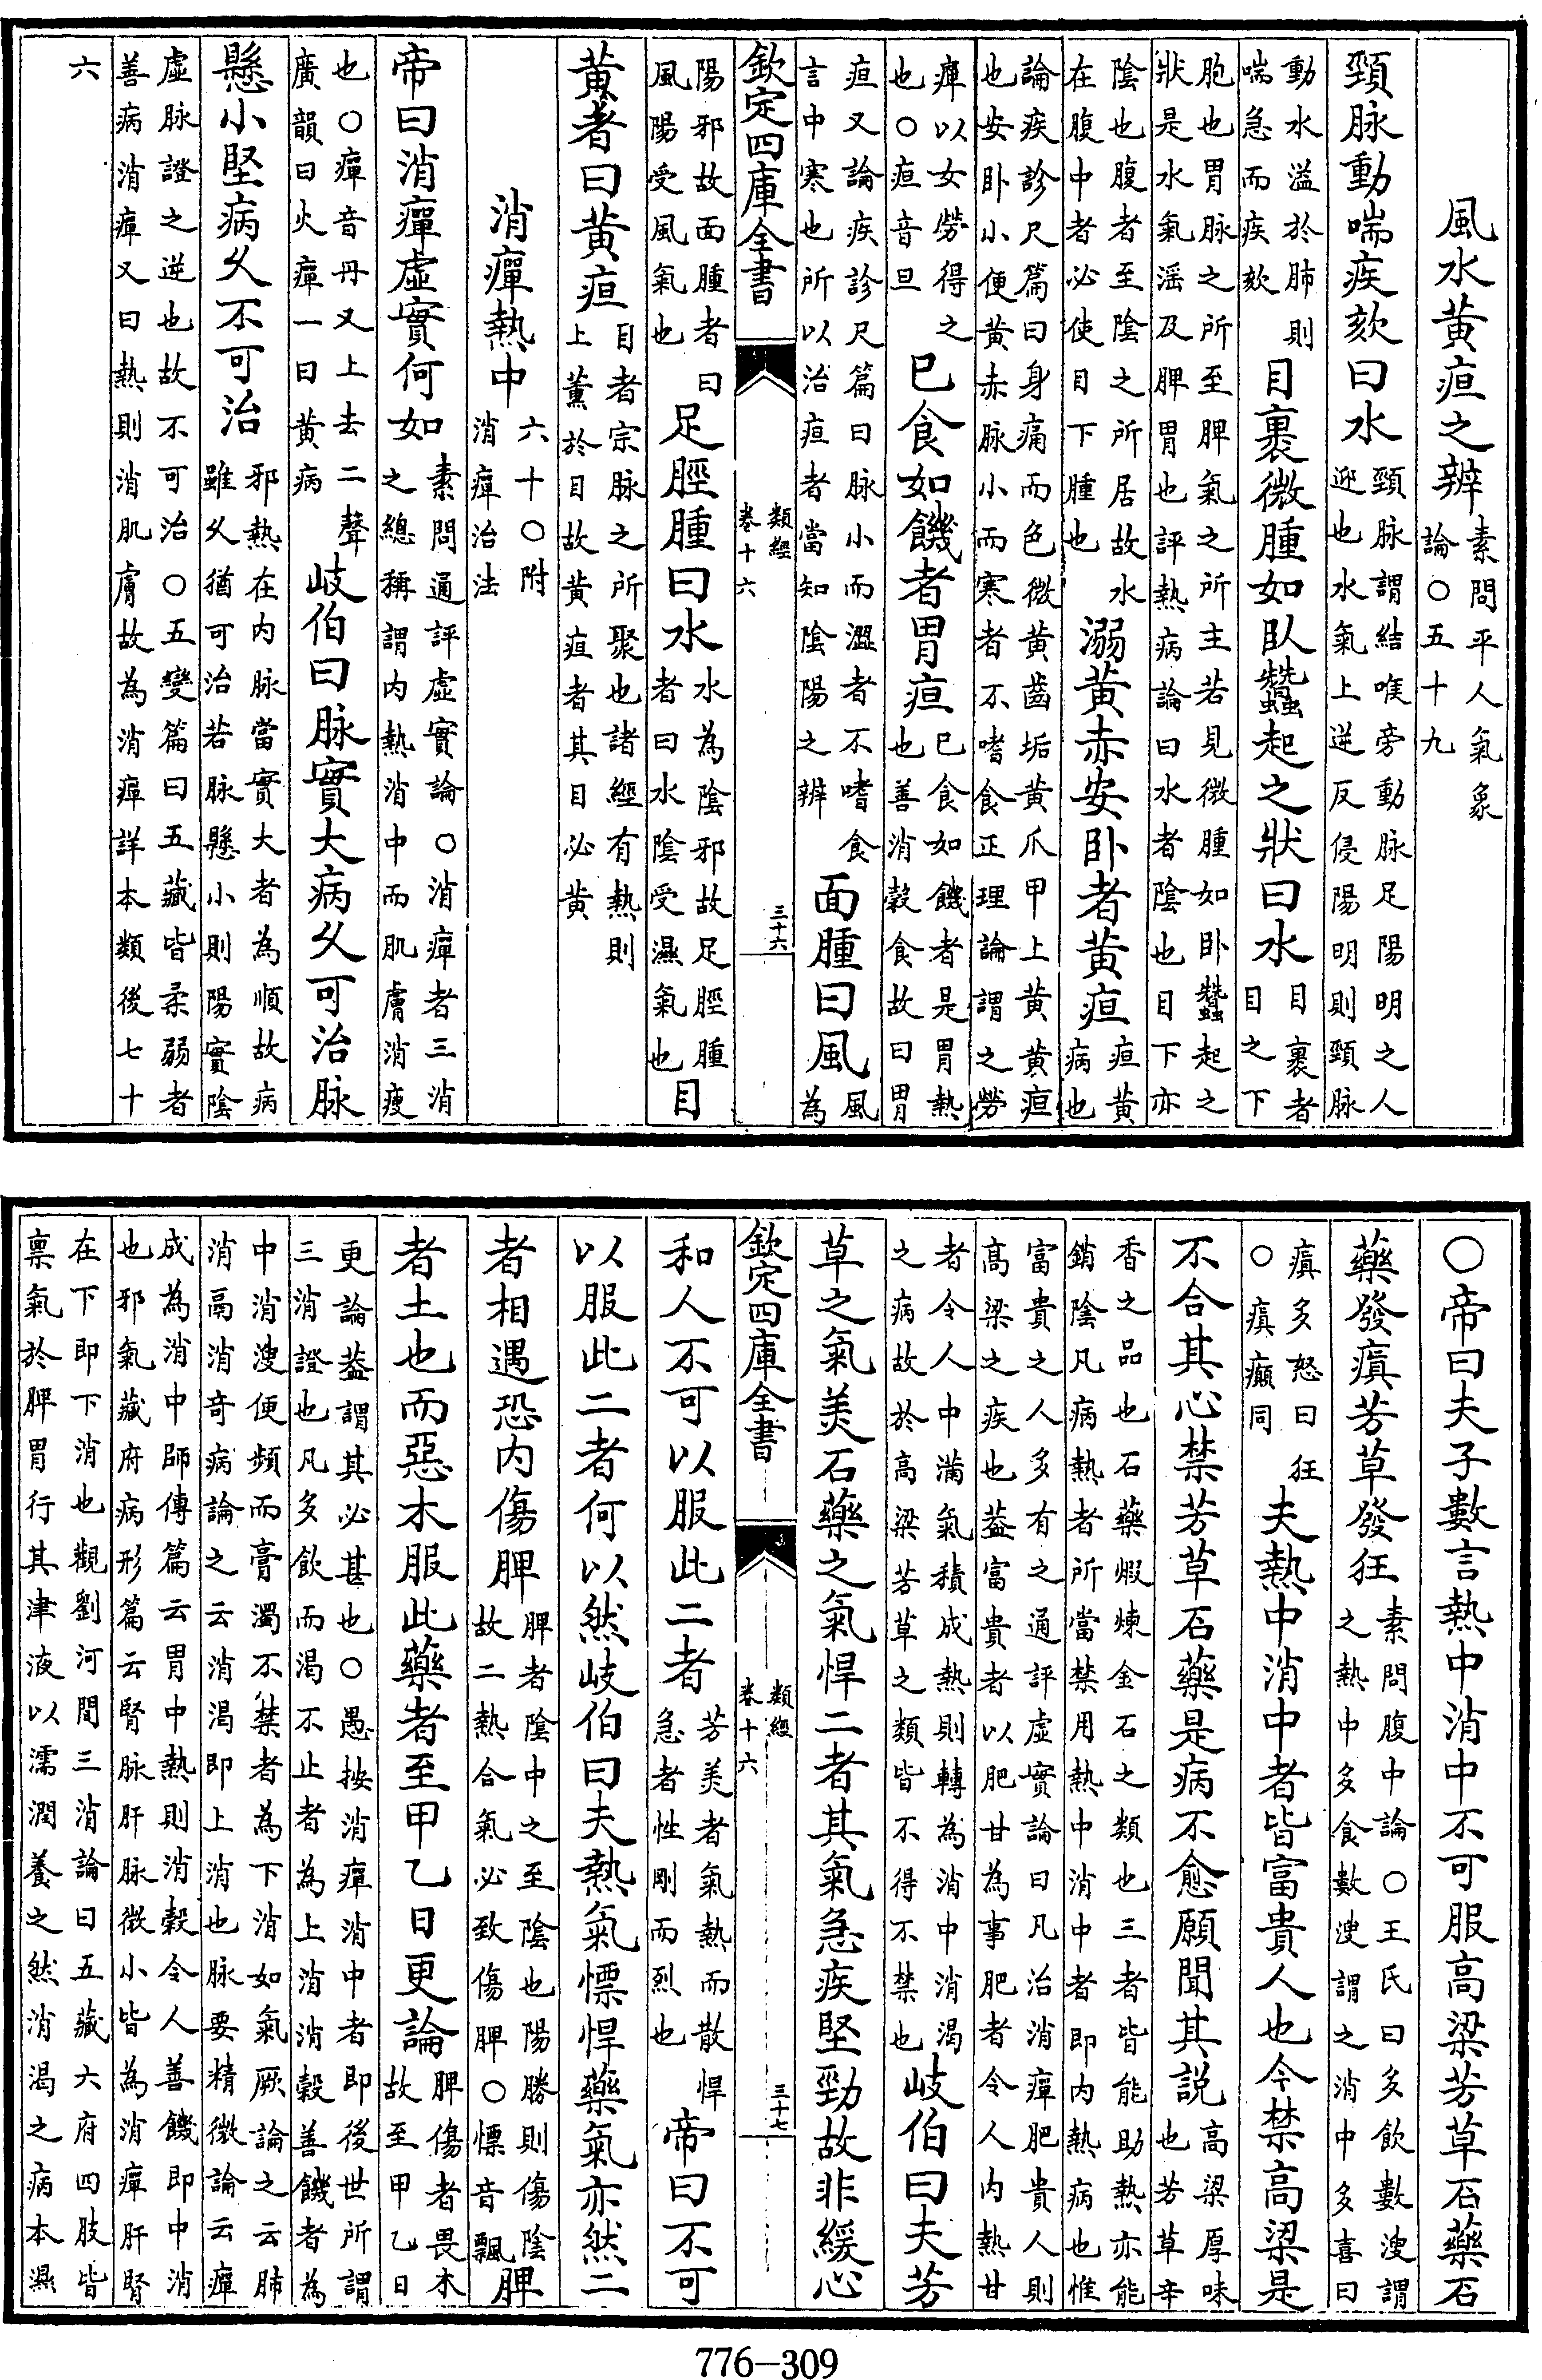 風水黄疸之辨素問平人氣象論〇五十九
頸脉動喘疾欬曰水頸脉謂結喉旁動脉足陽明之人迎也水氣上逆反侵陽明則頸脉
動水溢於肺則喘急而疾欬目裹微腫如臥蠶起之狀曰水目裹者目之下
胞也胃脉之所至脾氣之所主若見微腫如卧蠶起之狀是水氣滛及脾胃也評熱病論曰水者陰也目下亦
陰也腹者至陰之所居故水在腹中者必使目下腫也溺黄赤安卧者黄疸疸黄病也
論疾診尺篇曰身痛而色微黄齒垢黄爪甲上黄黄疸也安卧小便黄赤脉小而寒者不嗜食正理論謂之勞
癉以女勞得之也〇疸音旦已食如饑者胃疸已食如饑者是胃熱也善消穀食故曰胃
疸又論疾診尺篇曰脉小而澀者不嗜食言中寒也所以治疸者當知陰陽之辨面腫曰風風為
欽定四庫全書 類經 卷十六 三十六
陽邪故面腫者曰風陽受風氣也足脛腫曰水水為陰邪故足脛腫者曰水陰受濕氣也目
黄者曰黄疸目者宗脉之所聚也諸經有熱則上薰於目故黄疸者其目必黄
消癉熱中六十〇附消癉治法
帝曰消癉虛實何如素問通評虛實論〇消癉者三消之總稱謂内熱消中而肌膚消瘦
也〇癉音丹又上去二聲廣韻曰火癉一曰黄病岐伯曰脉實大病久可治脉
懸小堅病久不可治邪熱在内脉當實大者為順故病雖久猶可治若脉懸小則陽實陰
虛脉證之逆也故不可治〇五變篇曰五藏皆柔弱者善病消癉又曰熱則消肌膚故為消癉詳本類後七十
六
〇帝曰夫子數言熱中消中不可服高梁芳草石藥石
藥發瘨芳草發狂素問腹中論〇王氏曰多飲數溲謂之熱中多食數溲謂之消中多喜曰
瘨多怒曰狂〇瘨癲同夫熱中消中者皆富貴人也今禁高梁是
不合其心禁芳草石藥是病不愈願聞其説高梁厚味也芳草辛
香之品也石藥煅煉金石之類也三者皆能助熱亦能銷陰凡病熱者所當禁用熱中消中者即内熱病也惟
富貴之人多有之通評虛實論曰凡治消癉肥貴人則髙梁之疾也葢富貴者以肥甘為事肥者令人内熱甘
者令人中滿氣積成熱則轉為消中消渴之病故於高梁芳草之類皆不得不禁也岐伯曰夫芳
草之氣美石藥之氣悍二者其氣急疾堅勁故非緩心
欽定四庫全書 類經 卷十六 三十七
和人不可以服此二者芳美者氣熱而散悍急者性剛而烈也帝曰不可
以服此二者何以然岐伯曰夫熱氣慓悍藥氣亦然二
者相遇恐内傷脾脾者陰中之至陰也陽勝則傷陰故二熱合氣必致傷脾〇慓音飄脾
者土也而惡木服此藥者至甲乙日更論脾傷者畏木故至甲乙日
更論葢謂其必甚也〇愚按消癉消中者即後世所謂三消證也凡多飲而渴不止者為上消消穀善饑者為
中消溲便頻而膏濁不禁者為下消如氣厥論之云肺消鬲消竒病論之云消渴即上消也脉要精微論云癉
成為消中師傳篇云胃中熱則消穀令人善饑即中消也邪氣藏府病形篇云腎脉肝脉微小皆為消癉肝腎
在下即下消也觀劉河間三消論曰五藏六府四肢皆禀氣於脾胃行其津液以濡潤養之然消渴之病本濕
776-309